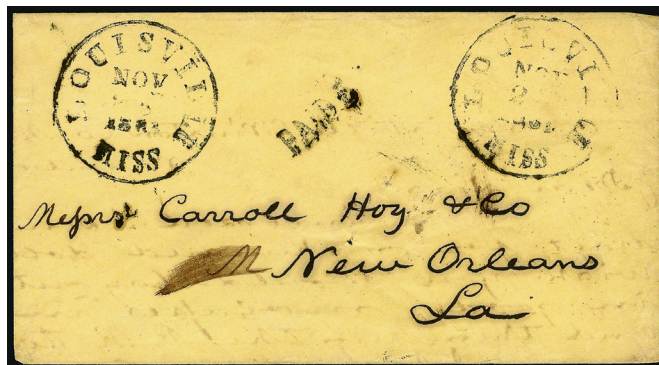 LOUISVILLE
NOV
MISS
PAID 5
LOUISVILLE
NOV
MISS
Messrs Carroll Hoy & Co
New Orleans
La